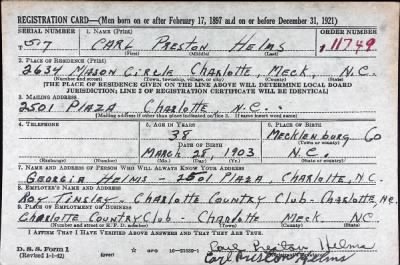 REGISTRATION CARD—(Men born on or after February 17, 1897 and on or before December 31, 1921)
SERIAL NUMBER 1. NAME (Print) ORDER NUMBER
T 517 CARL PRESTON HELMS T 11749
(First) (Middle) (Last)
2. PLACE OF RESIDENCE (Print)
2634 MASON CIRCLE CHARLOTTE, MECK, N.C.
(Number and street) (Town, township, village, or city) (County) (State)
[THE PLACE OF RESIDENCE GIVEN ON THE LINE ABOVE WILL DETERMINE LOCAL BOARD
JURISDICTION; LINE 2 OF REGISTRATION CERTIFICATE WILL BE IDENTICAL]
3. MAILING ADDRESS
2501 PLAZA CHARLOTTE, N.C.
[Mailing address if other than place indicated on line 2. If same insert word same]
4. TELEPHONE 5. AGE IN YEARS 6. PLACE OF BIRTH
38 MECKLENBURG CO
DATE OF BIRTH (Town or county)
MARCH 28, 1903 N.C.
(Exchange) (Number) (Mo.) (Day) (Yr.) (State or country)
7. NAME AND ADDRESS OF PERSON WHO WILL ALWAYS KNOW YOUR ADDRESS
GEORGIA HELMS - 2501 PLAZA CHARLOTTE, NC.
8. EMPLOYER'S NAME AND ADDRESS
ROY TINSLEY - CHARLOTTE COUNTRY CLUB - CHARLOTTE, NC
9. PLACE OF EMPLOYMENT OR BUSINESS
CHARLOTTE COUNTRY CLUB - CHARLOTTE MECK NC
(Number and street or R. F. D. number) (Town) (County) (State)
I AFFIRM THAT I HAVE VERIFIED ABOVE ANSWERS AND THAT THEY ARE TRUE.
Carl Preston Helms
D. S. S. Form 1
(Revised 1-1-42) (over) Carl Preston Helms